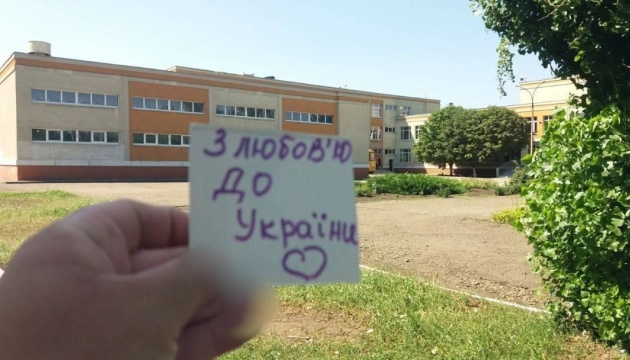 З ЛЮБОВ'Ю
ДО
УКРАЇНИ